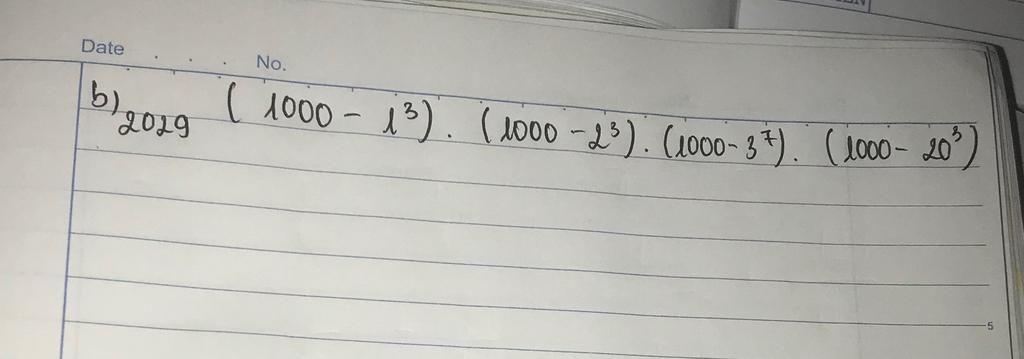 Date . . . No.
b) 2029 (1000 - 1³). (1000 - 2³). (1000 - 3⁷). (1000 - 20³)
5